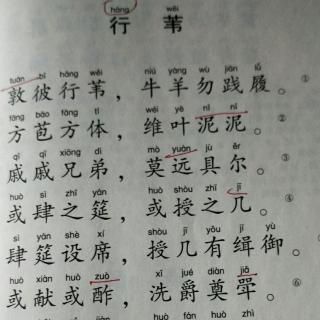 háng wěi
行 苇
tuán bǐ háng wěi niú yáng wù jiàn lǚ
敦彼行苇，牛羊勿践履。①
fāng bāo fāng tǐ wéi yè nǐ nǐ
方苞方体，维叶泥泥。②
qī qī xiōng dì mò yuǎn jù ěr
戚戚兄弟，莫远具尔。③
huò sì zhī yán huò shòu zhī jī
或肆之筵，或授之几。④
sì yán shè xí shòu jī yǒu jī yù
肆筵设席，授几有缉御。
huò xiàn huò zuò xǐ jué diàn jiǎ
或献或酢，洗爵奠斝。⑥